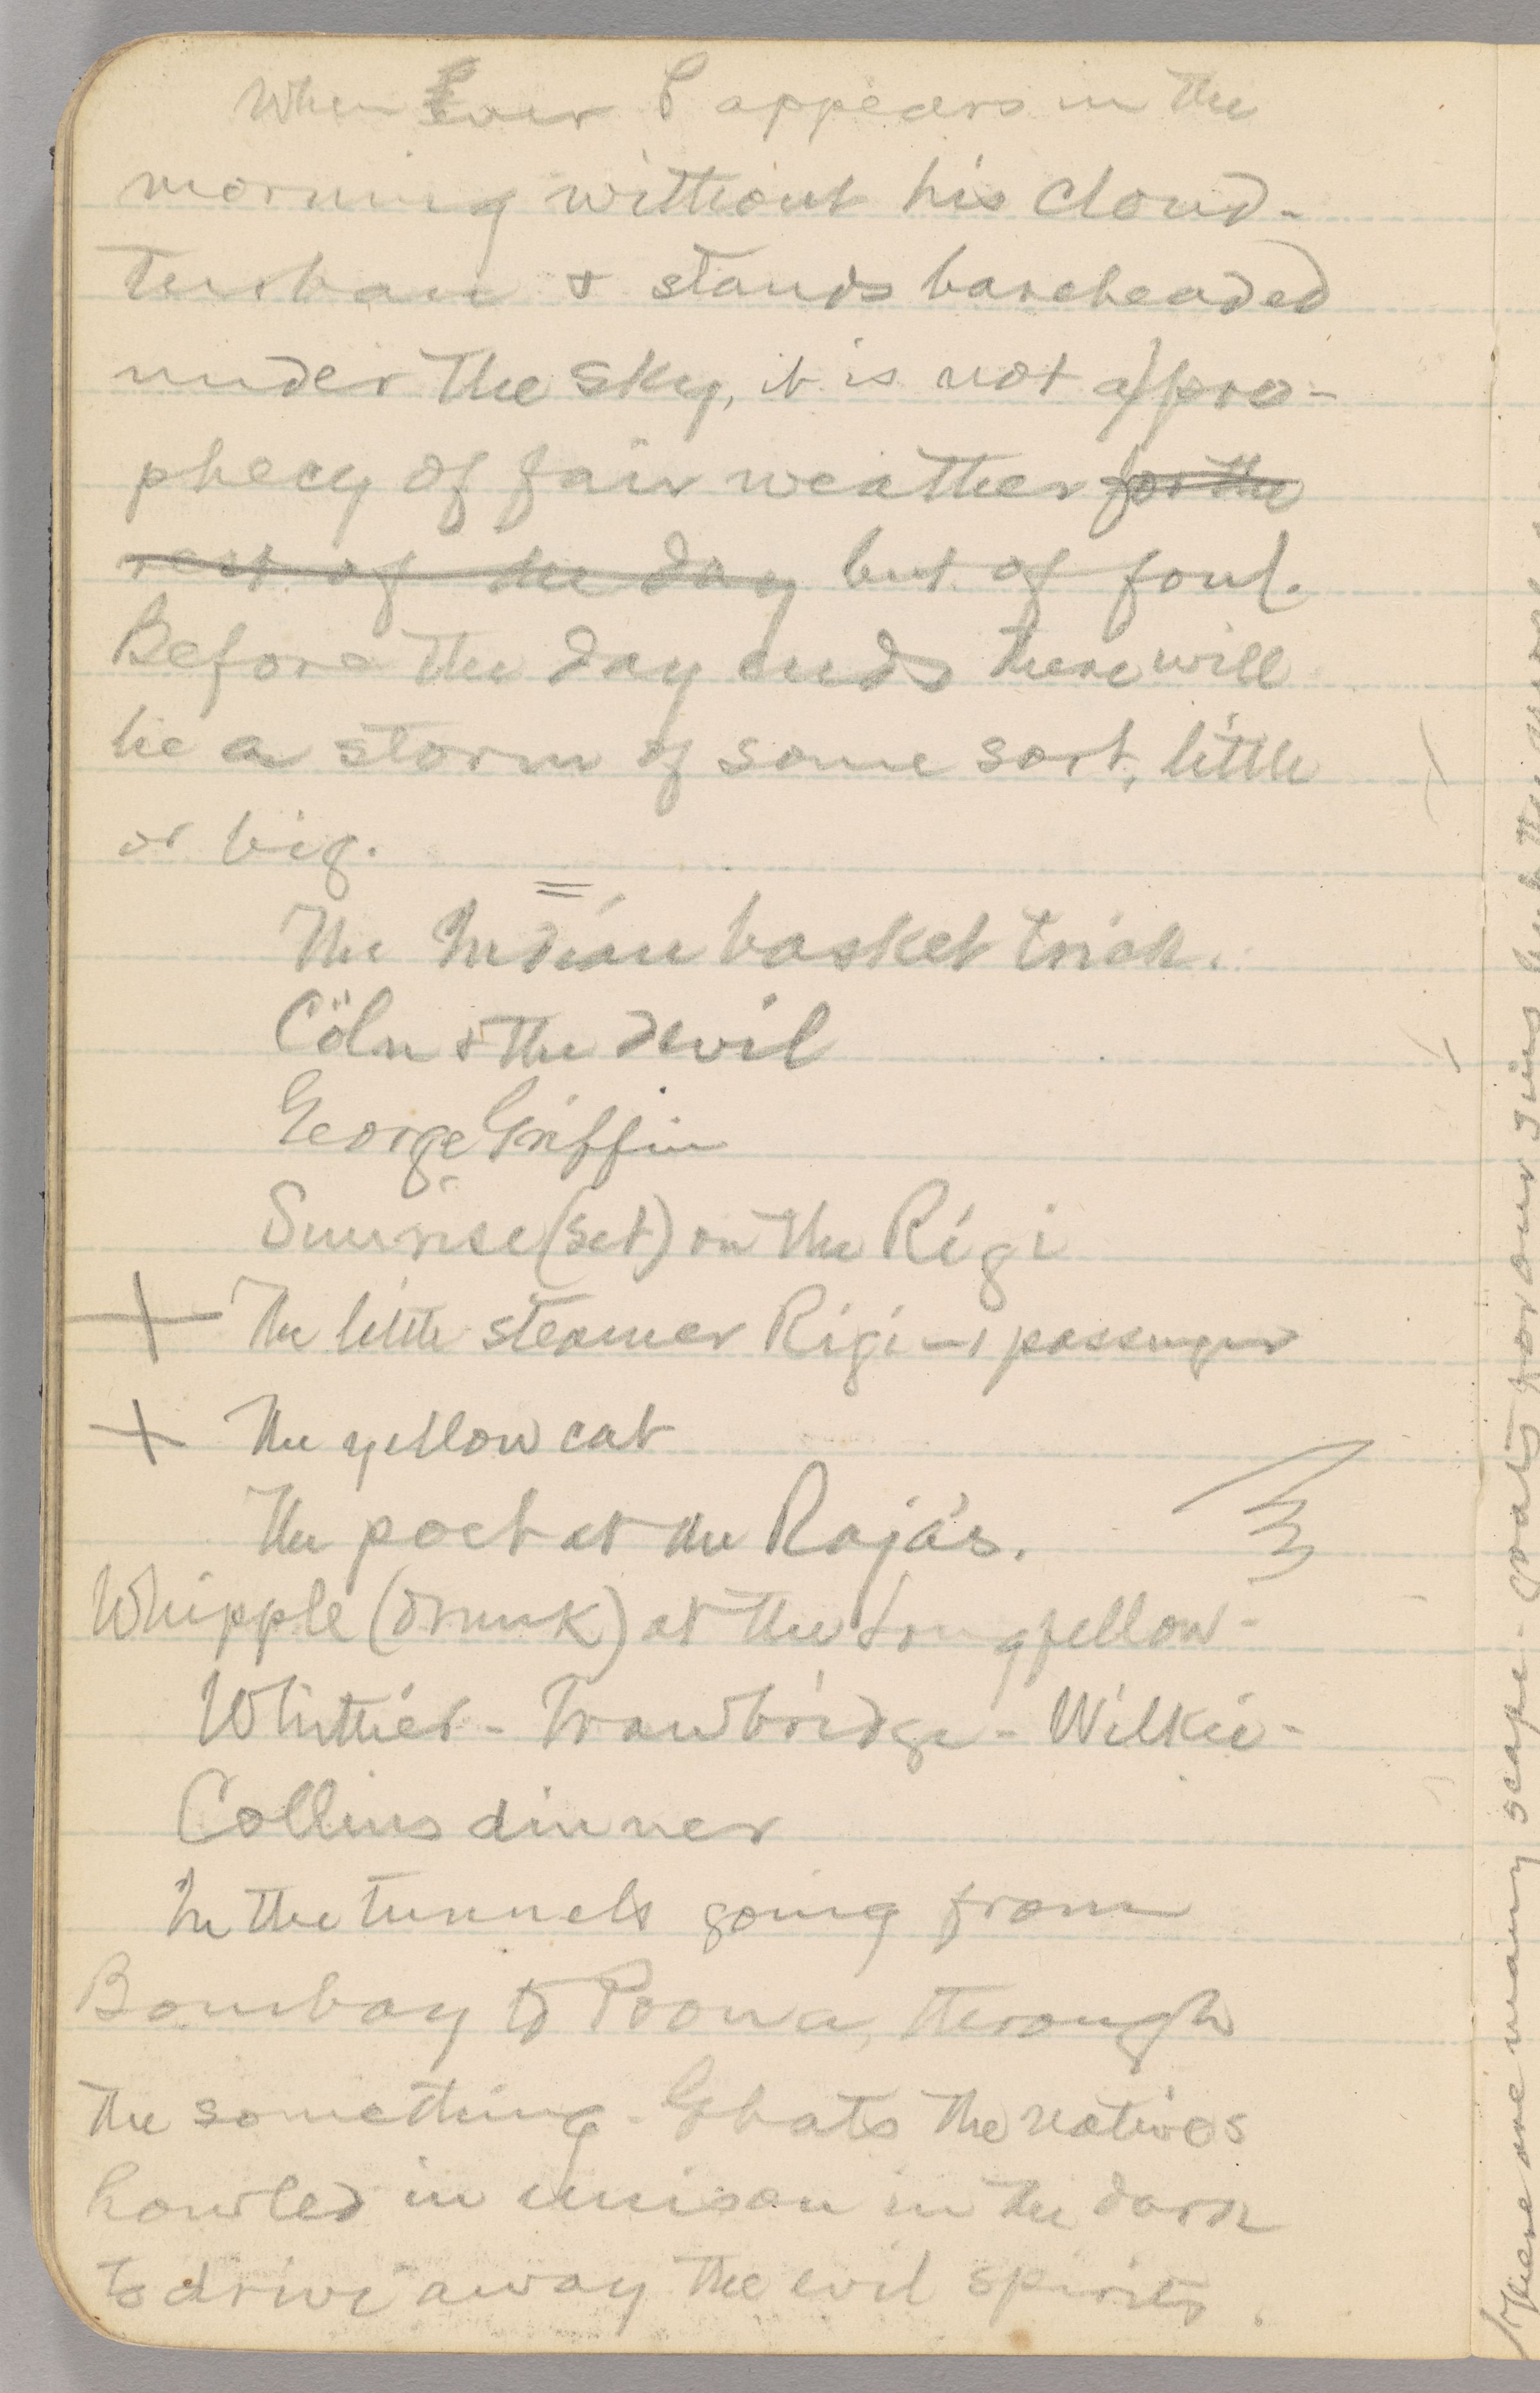 Whenever P appears in the
morning without his cloud-
turban & stands bareheaded
under the sky, it is not a pro-
phecy of fair weather for the
rest of the day but of foul.
Before the day ends there will
be a storm of some sort, little
or big.
=
The Indian basket trick.
Cöln & the devil
George Griffin
Sunrise (set) on the Rigi
+ The little steamer Rigi — 1 passenger
+ The yellow cat
The poet at the Raja's.
Whipple (drunk) at the Longfellow-
Whittier - Trowbridge - Wilkie -
Collins dinner
In the tunnels going from
Bombay to Poona, through
the something-Ghats the natives
howled in unison in the dark
to drive away the evil spirits.
There are many scape-goats for our sins but the